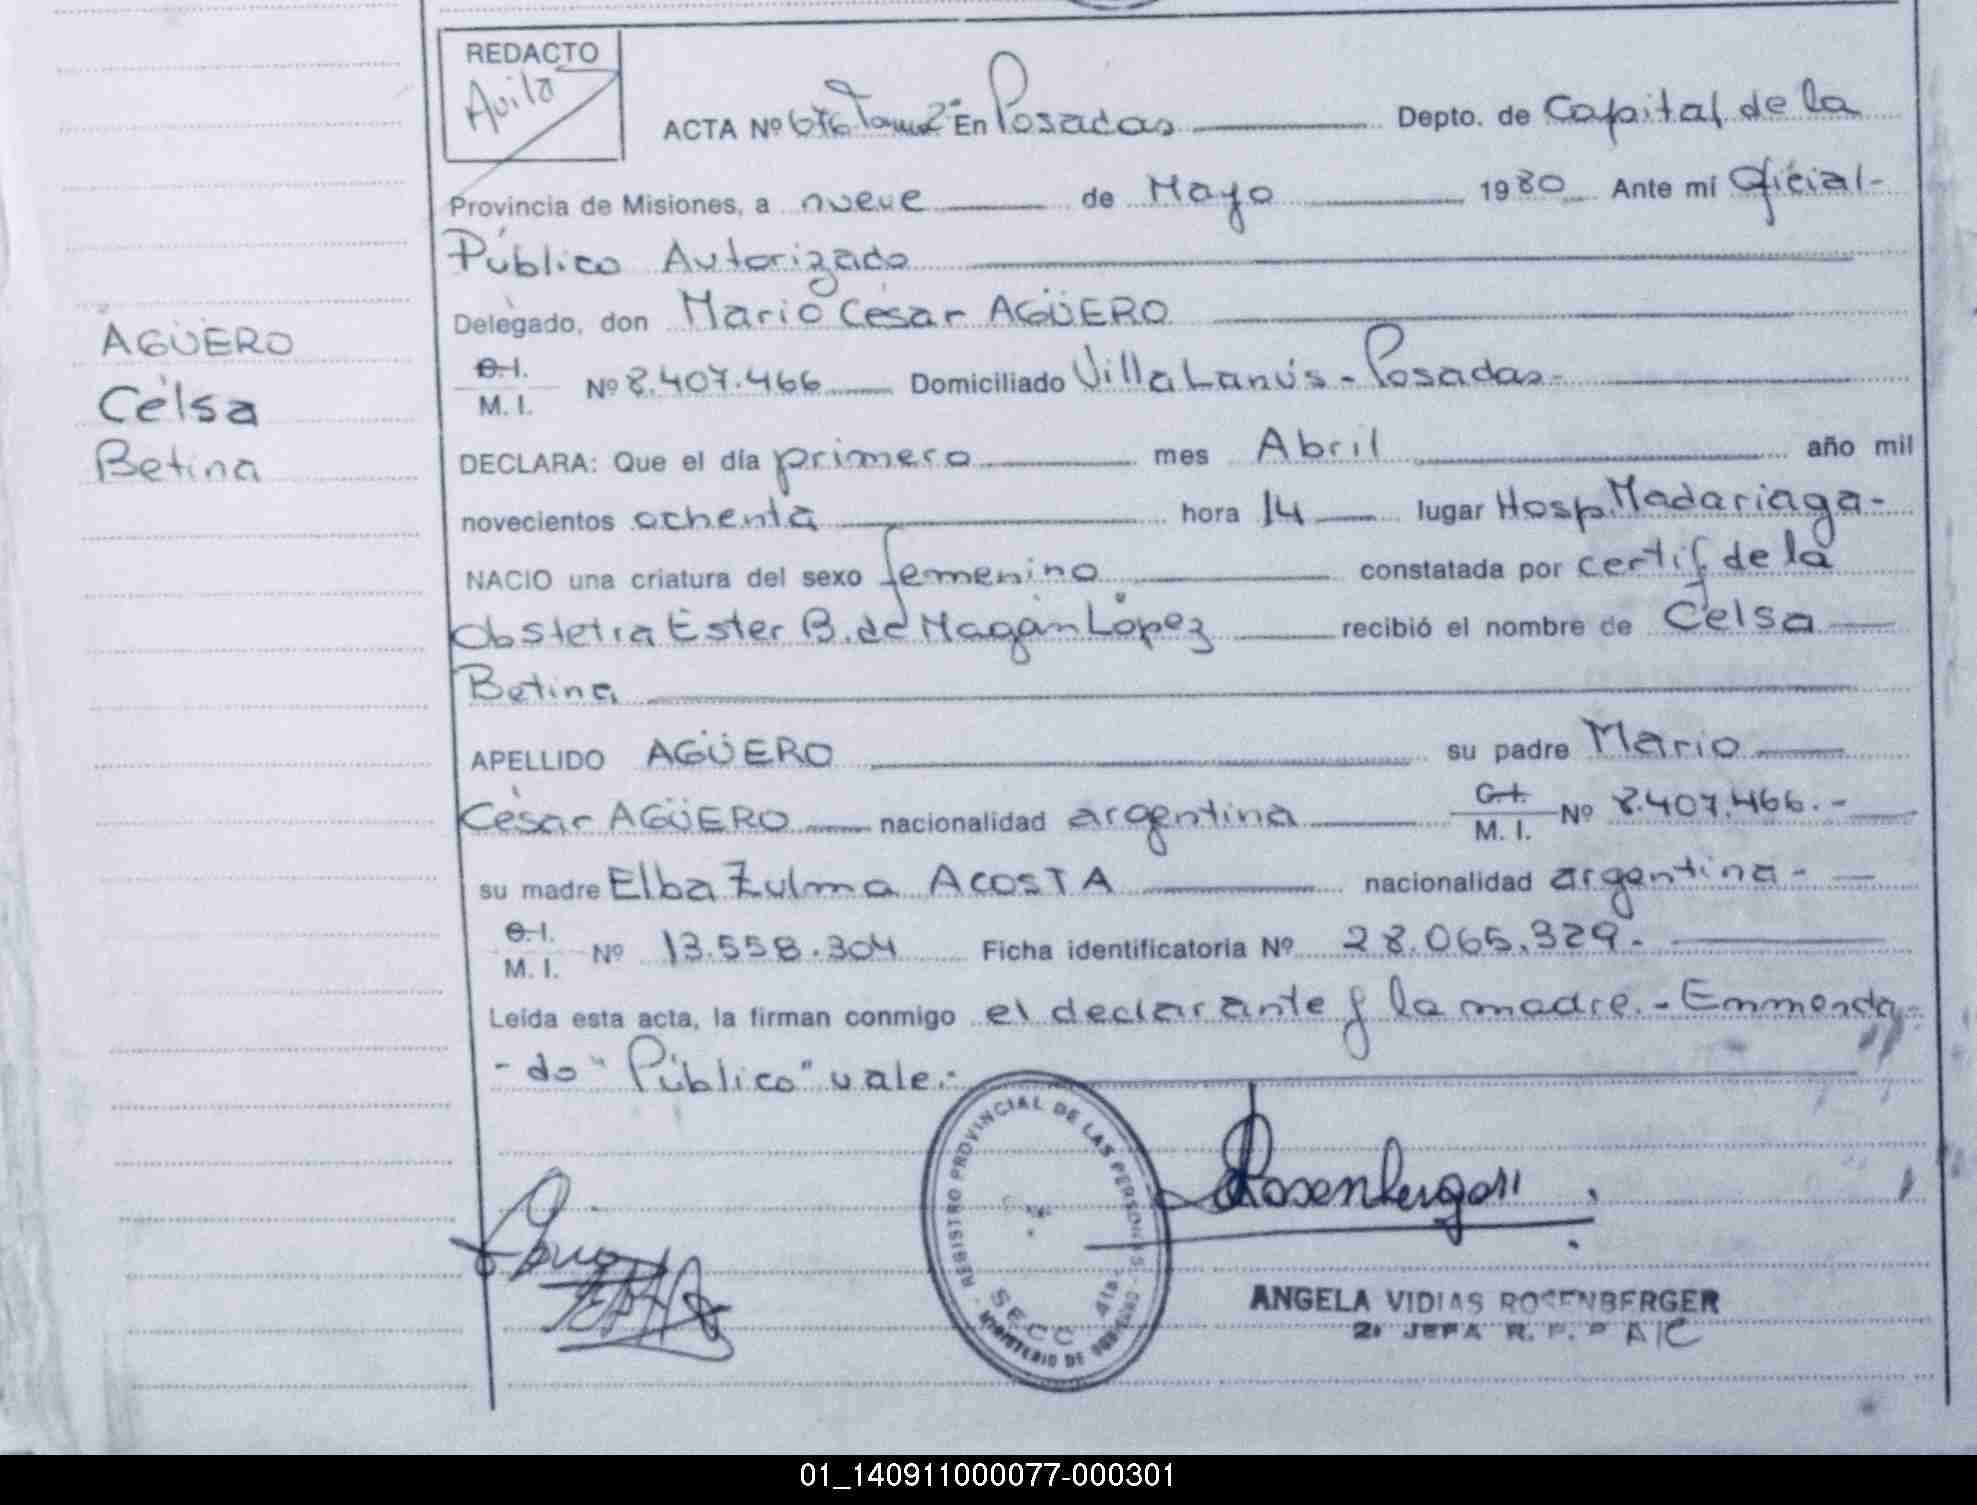 REDACTO
Avila
ACTA Nº 676 Tomo 2º En Posadas Depto. de Capital de la
Provincia de Misiones, a nueve de Mayo 1980 Ante mí Oficial-
Público Autorizado
Delegado, don Mario César AGÜERO
C.I. M. I. Nº 8.407.466 Domiciliado Villa Lanús - Posadas-
DECLARA: Que el día primero mes Abril año mil
novecientos ochenta hora 14 lugar Hosp. Madariaga-
NACIO una criatura del sexo femenino constatada por certif de la
Obstetra Ester B. de Magán López recibió el nombre de Celsa
Betina
APELLIDO AGÜERO su padre Mario
César AGÜERO nacionalidad argentina C.I. M. I. Nº 8.407.466.-
su madre Elba Zulma ACOSTA nacionalidad argentina-
C.I. M. I. Nº 13.558.304 Ficha identificatoria Nº 28.065.329.
Leída esta acta, la firman conmigo el declarante y la madre.- Enmenda-
-do "Público" vale.-
AGÜERO
Celsa
Betina
REGISTRO PROVINCIAL DE LAS PERSONAS
SECC. 4ta.
MINISTERIO DE GOBIERNO
Rosenberger
ANGELA VIDIAS ROSENBERGER
2º JEFA R. P. P A/C
01_140911000077-000301